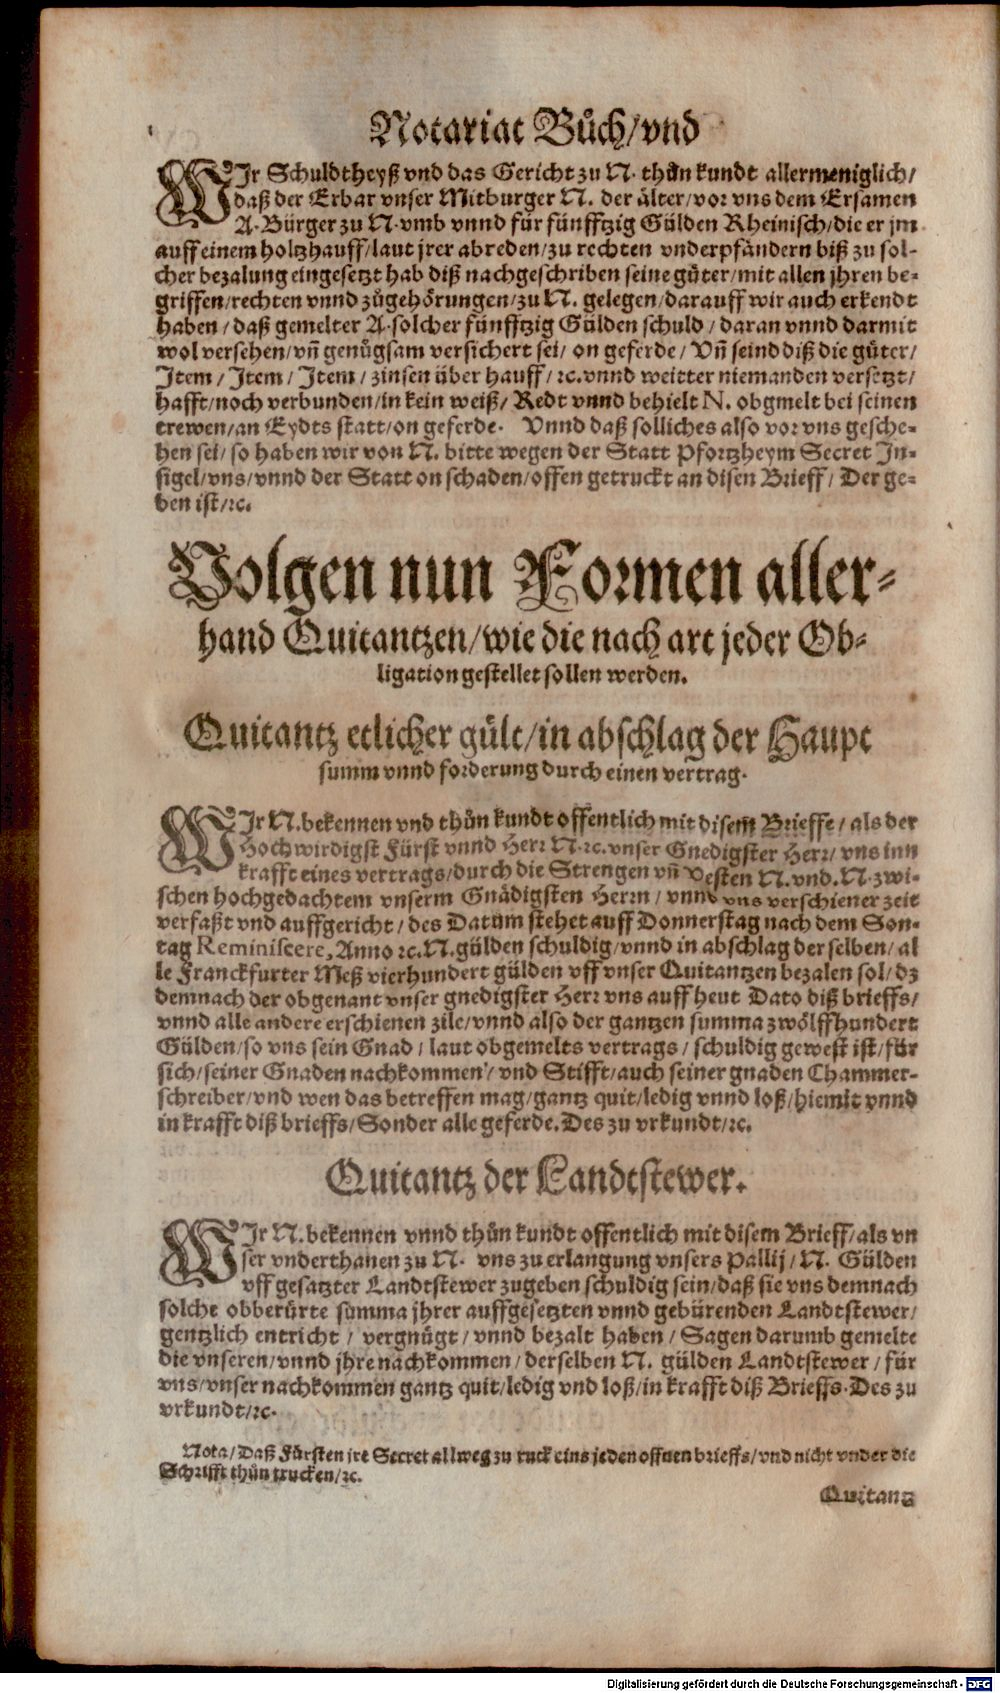 Notariat Bůch/vnd
WIr Schuldtheyß vnd das Gericht zu N. thůn kundt allermeniglich/
daß der Erbar vnser Mitburger N. der älter/vor vns dem Ersamen
A. Bürger zu N. vmb vnnd für fünfftzig Gülden Rheinisch/die er jm
auff einem holtzhauff/laut jrer abreden/zu rechten vnderpfändern biß zu sol-
cher bezalung eingesetzt hab diß nachgeschriben seine güter/mit allen jhren be-
griffen/rechten vnnd zůgehörungen/zu N. gelegen/darauff wir auch erkendt
haben/daß gemelter A. solcher fünfftzig Gülden schuld/daran vnnd darmit
wol versehen/vñ genůgsam versichert sei/on geferde/Vñ seind diß die güter/
Item/Item/Item/zinsen über hauff/ꝛc. vnnd weitter niemanden versetzt/
hafft/noch verbunden/in kein weiß/Redt vnnd behielt N. obgmelt bei seinen
trewen/an Eydts statt/on geferde. Vnnd daß solliches also vor vns gesche-
hen sei/so haben wir von N. bitte wegen der Statt Pfortzheym Secret In-
sigel/vns/vnnd der Statt on schaden/offen getruckt an disen Brieff/Der ge-
ben ist/ꝛc.
Volgen nun Formen aller-
hand Quitantzen/wie die nach art jeder Ob-
ligation gestellet sollen werden.
Quitantz etlicher gült/in abschlag der Haupt
summ vnnd forderung durch einen vertrag.
WIr N. bekennen vnd thůn kundt offentlich mit disem Brieffe/als der
Hochwirdigst Fürst vnnd Herr N. ꝛc. vnser Gnedigster Herr/vns inn
krafft eines vertrags/durch die Strengen vñ Vesten N. vnd. N. zwi-
schen hochgedachtem vnserm Gnädigsten Herrn/vnnd vns verschiener zeit
verfaßt vnd auffgericht/des Datum stehet auff Donnerstag nach dem Son-
tag Reminiscere, Anno ꝛc. N. gülden schuldig/vnnd in abschlag derselben/al
le Franckfurter Meß vierhundert gülden vff vnser Quitantzen bezalen sol/dz
demnach der obgenant vnser gnedigster Herr vns auff heut Dato diß brieffs/
vnnd alle andere erschienen zile/vnnd also der gantzen summa zwölffhundert
Gülden/so vns sein Gnad/laut obgemelts vertrags/schuldig gewest ist/für
sich/seiner Gnaden nachkommen/vnd Stifft/auch seiner gnaden Chammer-
schreiber/vnd wen das betreffen mag/gantz quit/ledig vnnd loß/hiemit vnnd
in krafft diß brieffs/Sonder alle geferde. Des zu vrkundt/ꝛc.
Quitantz der Landtstewer.
WIr N. bekennen vnnd thůn kundt offentlich mit disem Brieff/als vn
ser vnderthanen zu N. vns zu erlangung vnsers Pallij/N. Gülden
vff gesatzter Landtstewer zugeben schuldig sein/daß sie vns demnach
solche obberürte summa jhrer auffgesetzten vnnd gebürenden Landtstewer/
gentzlich entricht/vergnůgt/vnnd bezalt haben/Sagen darumb gemelte
die vnseren/vnnd jhre nachkommen/derselben N. gülden Landtstewer/für
vns/vnser nachkommen gantz quit/ledig vnd loß/in krafft diß Brieffs. Des zu
vrkundt/ꝛc.
Nota/Daß Fürsten jre Secret allweg zu ruck eins jeden offnen brieffs/vnd nicht vnder die
Schrifft thůn trucken/ꝛc.
Quitantz
Digitalisierung gefördert durch die Deutsche Forschungsgemeinschaft - DFG